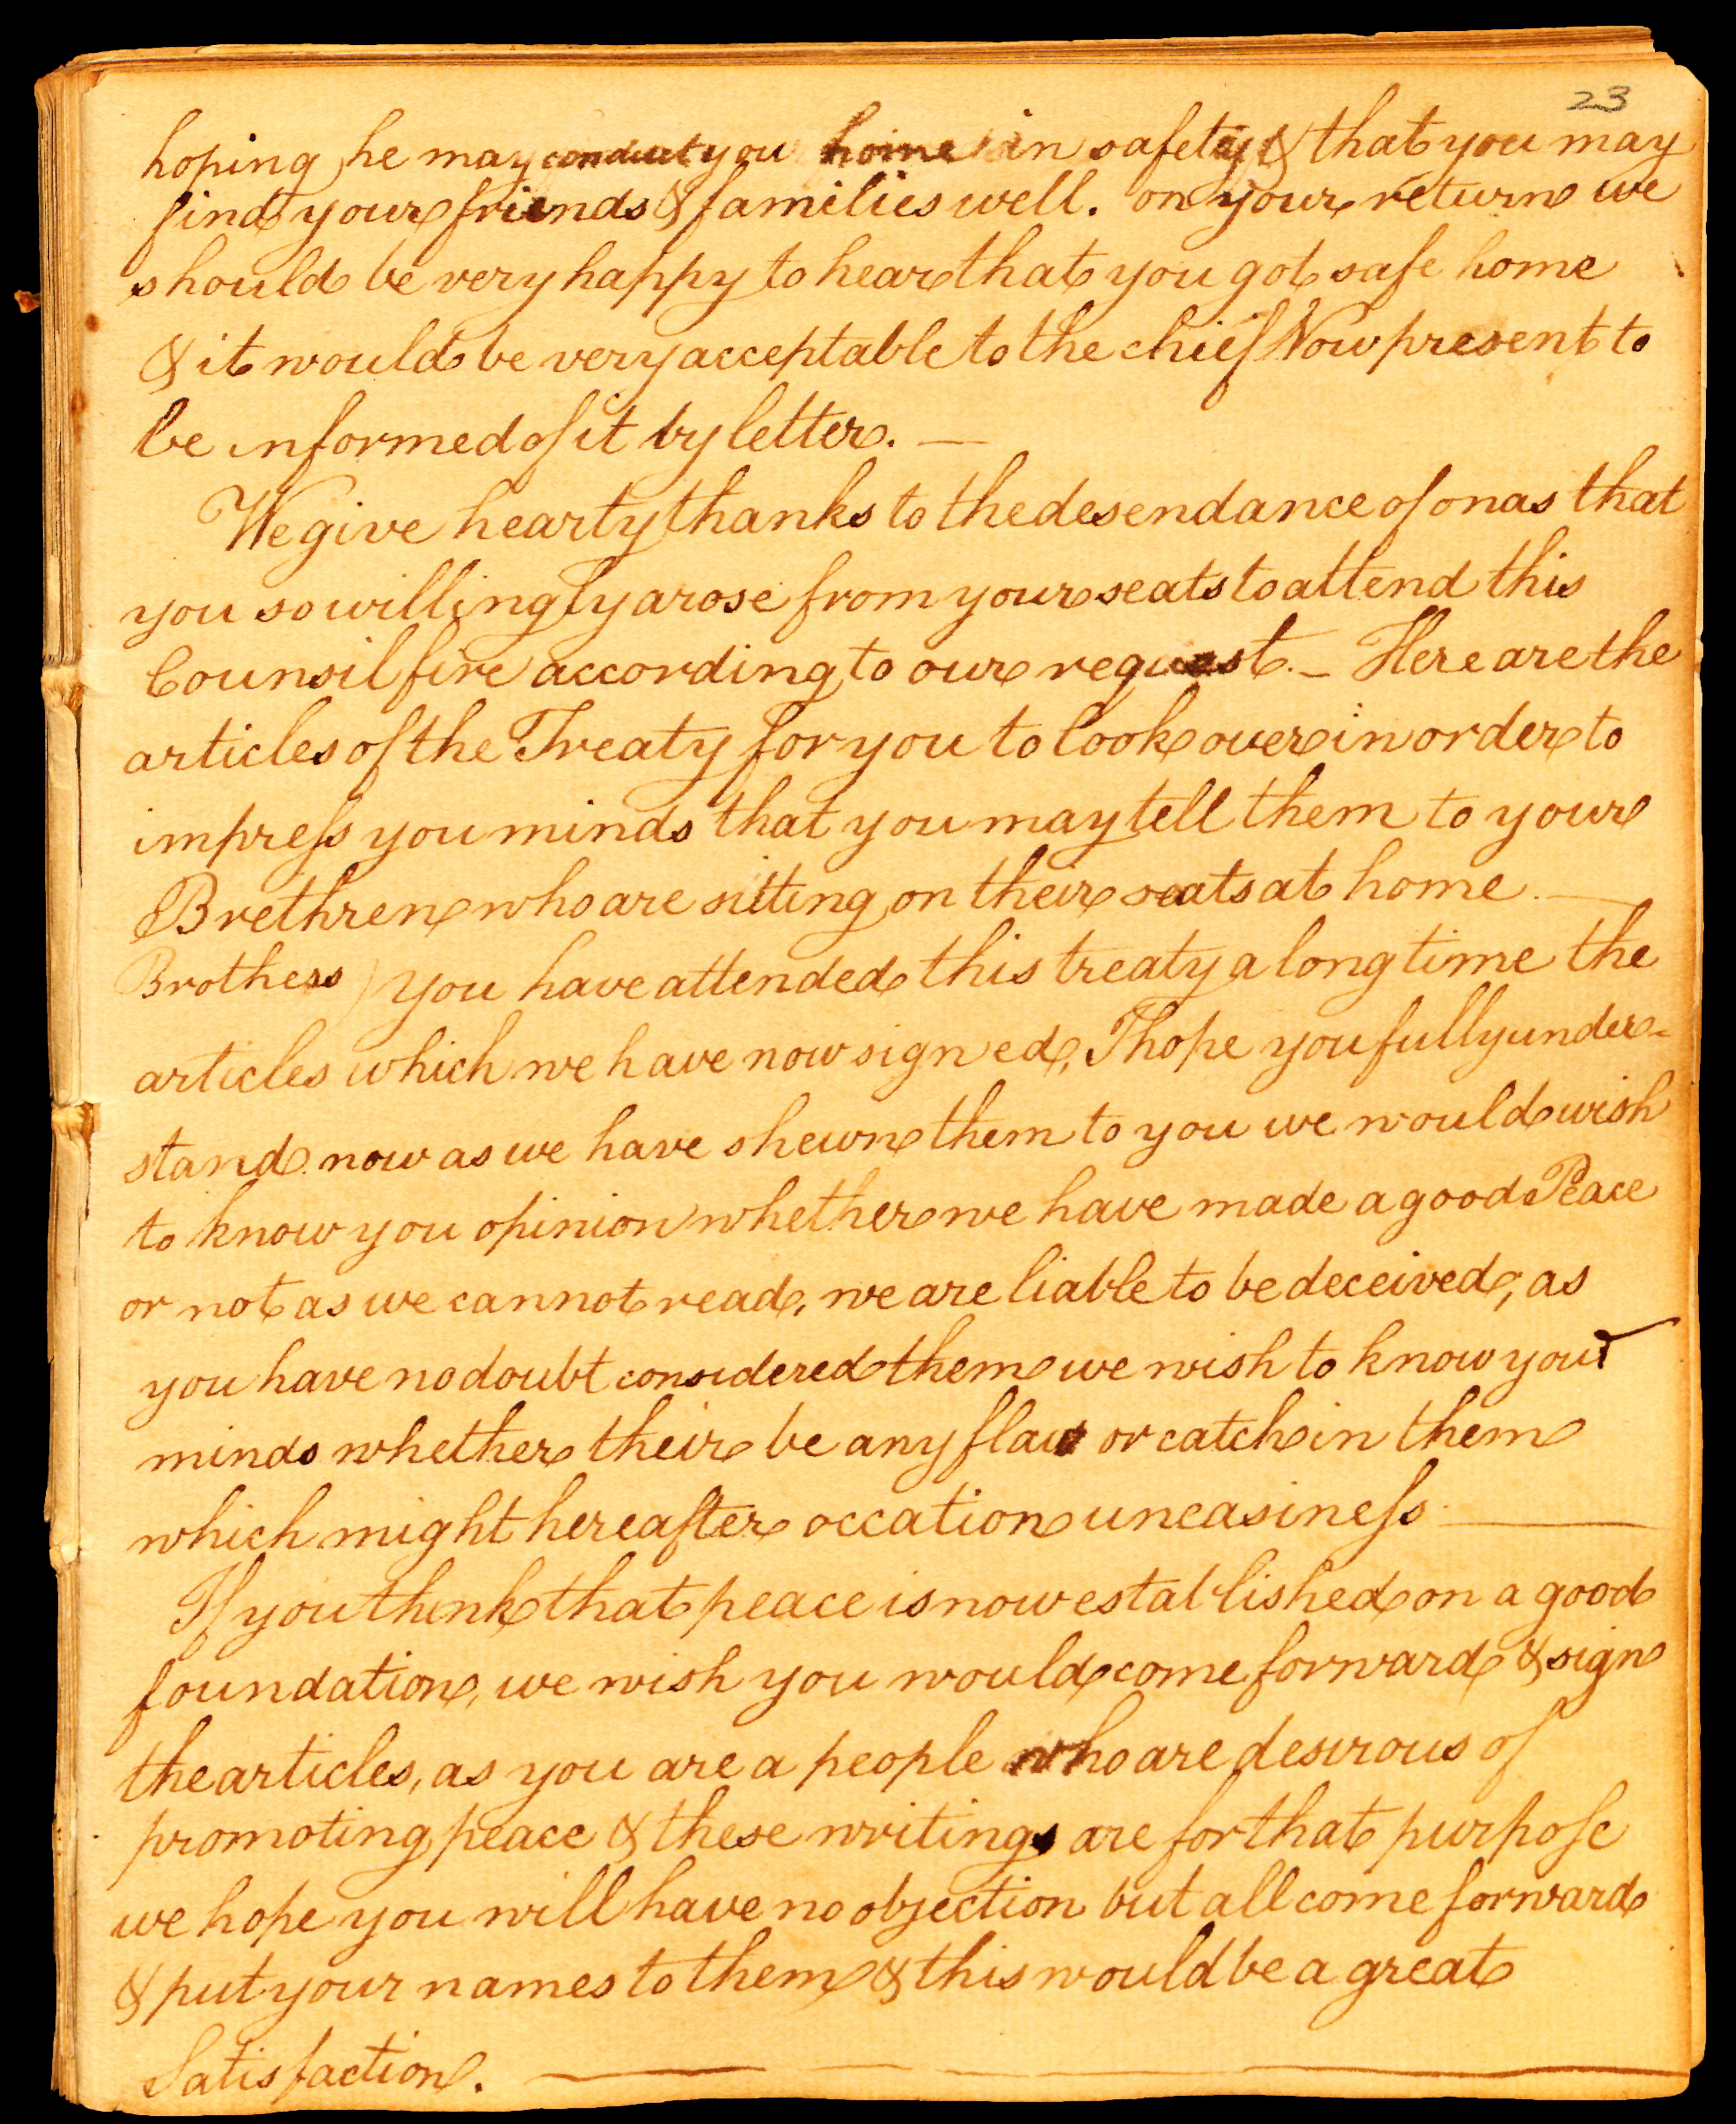 23
hoping he may conduct you home in safety & that you may
find your friends & families well. on your return we
should be very happy to hear that you got safe home
& it would be very acceptable to the chief Now present to
be informed of it by letter. —
We give hearty thanks to the desendance of onas that
you so willingly arose from your seats to attend this
Counsil fire according to our request. — Here are the
articles of the Treaty for you to look over in order to
impress you minds that you may tell them to your
Brethren who are sitting on their seats at home. —
Brothess ) you have attended this treaty a long time the
articles which we have now signed, I hope you fully under-
stand. now as we have shewn them to you we would wish
to know you opinion whether we have made a good Peace
or not as we cannot read, we are liable to be deceived; as
you have no doubt considered them we wish to know your
minds whether their be any flaw or catch in them
which might hereafter occation uneasiness —
If you think that peace is now established on a good
foundation, we wish you would come forward & sign
the articles, as you are a people who are desirous of
promoting peace & these writings are for that purpose
we hope you will have no objection but all come forward
& put your names to them & this would be a great
Satisfaction. —